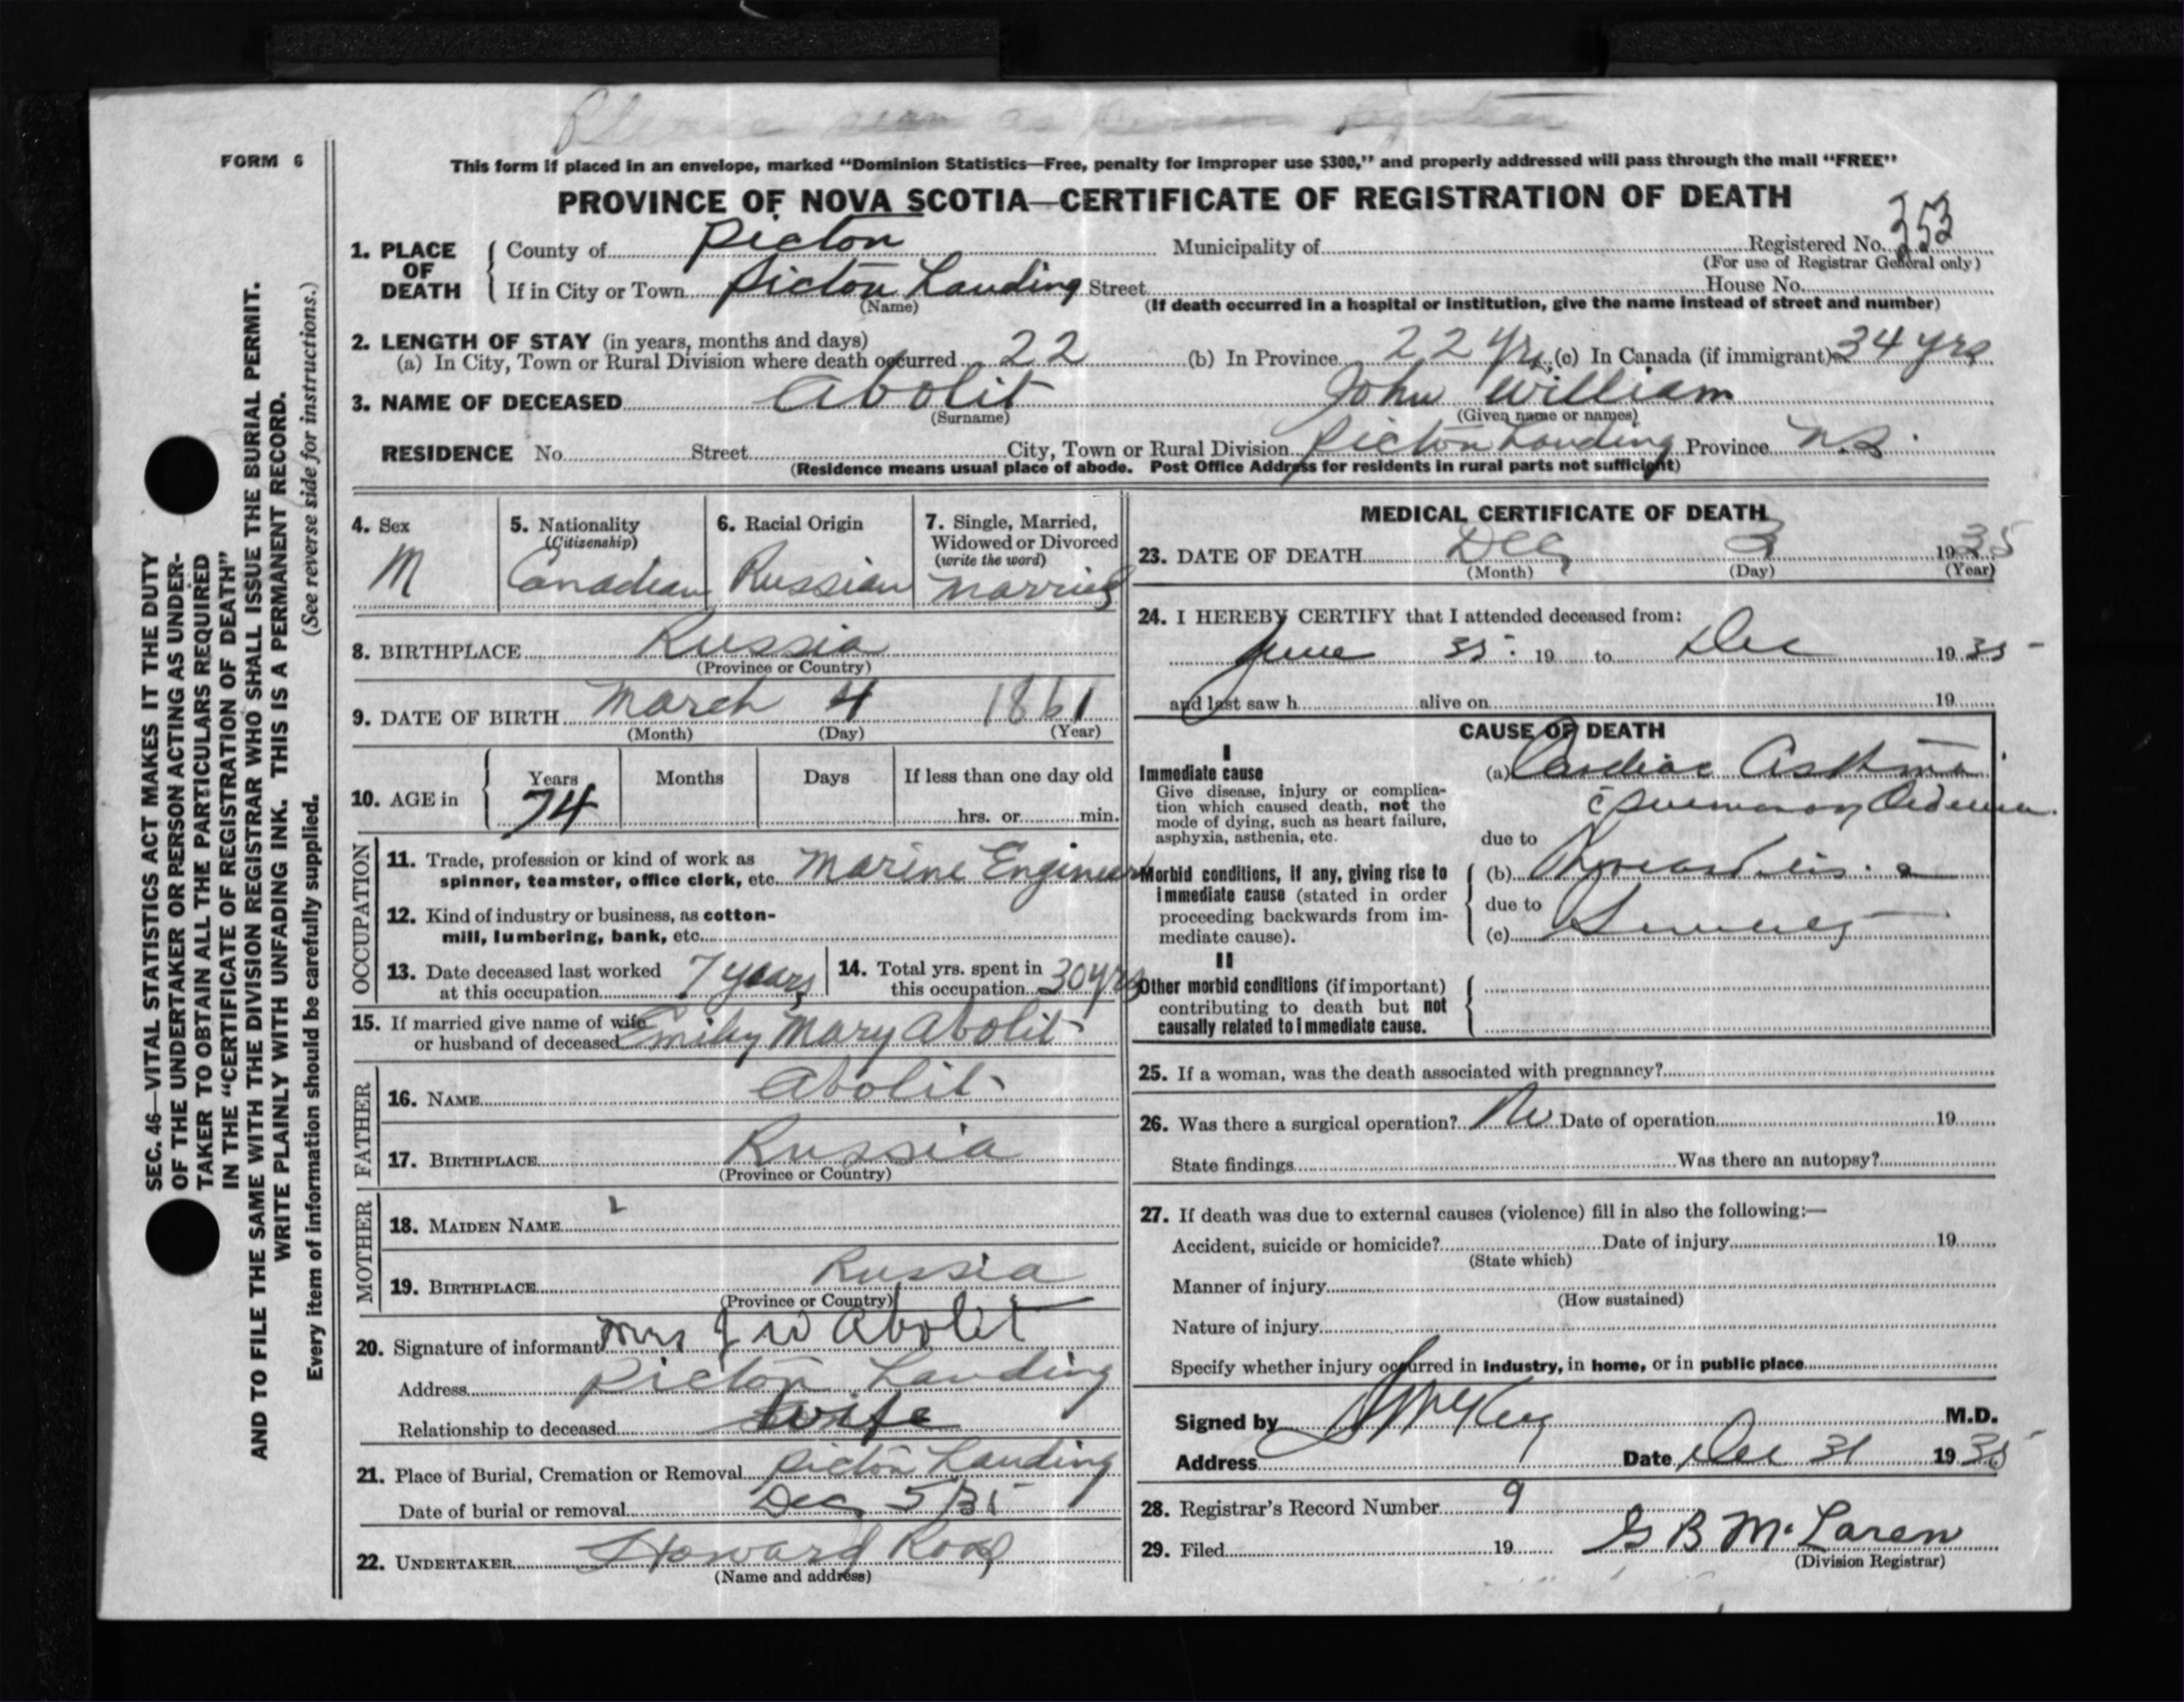 Please sign as Division Registrar
FORM 6
This form if placed in an envelope, marked “Dominion Statistics—Free, penalty for improper use $300,” and properly addressed will pass through the mail “FREE”
PROVINCE OF NOVA SCOTIA—CERTIFICATE OF REGISTRATION OF DEATH
1. PLACE OF DEATH County of Pictou Municipality of Registered No. 353
(For use of Registrar General only)
If in City or Town Pictou Landing Street House No.
(Name) (If death occurred in a hospital or institution, give the name instead of street and number)
2. LENGTH OF STAY (in years, months and days)
(a) In City, Town or Rural Division where death occurred 22 (b) In Province 22 yrs (c) In Canada (if immigrant) 34 yrs
3. NAME OF DECEASED Abolit John William
(Surname) (Given name or names)
RESIDENCE No. Street City, Town or Rural Division Pictou Landing Province N.S.
(Residence means usual place of abode. Post Office Address for residents in rural parts not sufficient)
4. Sex M
5. Nationality (Citizenship) Canadian
6. Racial Origin Russian
7. Single, Married, Widowed or Divorced (write the word) Married
8. BIRTHPLACE Russia
(Province or Country)
9. DATE OF BIRTH March 4 1861
(Month) (Day) (Year)
10. AGE in Years 74 Months Days If less than one day old
hrs. or min.
OCCUPATION
11. Trade, profession or kind of work as
spinner, teamster, office clerk, etc. Marine Engineer
12. Kind of industry or business, as cotton-
mill, lumbering, bank, etc.
13. Date deceased last worked
at this occupation 7 years
14. Total yrs. spent in
this occupation 30 yrs
15. If married give name of wife
or husband of deceased Emily Mary Abolit
FATHER
16. NAME Abolit
17. BIRTHPLACE Russia
(Province or Country)
MOTHER
18. MAIDEN NAME
19. BIRTHPLACE Russia
(Province or Country)
20. Signature of informant Mrs J W Abolit
Address Pictou Landing
Relationship to deceased Wife
21. Place of Burial, Cremation or Removal Pictou Landing
Date of burial or removal Dec 5/35
22. UNDERTAKER Howard
(Name and address)
MEDICAL CERTIFICATE OF DEATH
23. DATE OF DEATH Dec 3 1935
(Month) (Day) (Year)
24. I HEREBY CERTIFY that I attended deceased from:
June 35 19 to Dec 1935
and last saw h alive on 19
CAUSE OF DEATH
I
Immediate cause
Give disease, injury or complica-
tion which caused death, not the
mode of dying, such as heart failure,
asphyxia, asthenia, etc.
(a) Cardiac Asthma
c̄ Pulmonary Oedema
due to
Morbid conditions, if any, giving rise to
immediate cause (stated in order
proceeding backwards from im-
mediate cause).
(b) Myocarditis
due to
(c)
II
Other morbid conditions (if important)
contributing to death but not
causally related to immediate cause.
25. If a woman, was the death associated with pregnancy?
26. Was there a surgical operation? No Date of operation 19
State findings Was there an autopsy?
27. If death was due to external causes (violence) fill in also the following:—
Accident, suicide or homicide? Date of injury 19
(State which)
Manner of injury
(How sustained)
Nature of injury
Specify whether injury occurred in industry, in home, or in public place
Signed by M.D.
Address Date Dec 31 1935
28. Registrar's Record Number 9
29. Filed 19 G B McLaren
(Division Registrar)
SEC. 46—VITAL STATISTICS ACT MAKES IT THE DUTY
OF THE UNDERTAKER OR PERSON ACTING AS UNDER-
TAKER TO OBTAIN ALL THE PARTICULARS REQUIRED
IN THE “CERTIFICATE OF REGISTRATION OF DEATH”
AND TO FILE THE SAME WITH THE DIVISION REGISTRAR WHO SHALL ISSUE THE BURIAL PERMIT.
WRITE PLAINLY WITH UNFADING INK. THIS IS A PERMANENT RECORD.
(See reverse side for instructions.)
Every item of information should be carefully supplied.